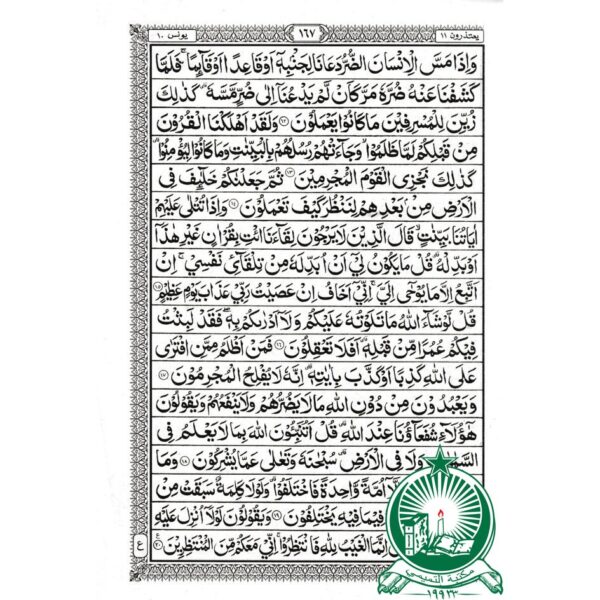 يعتذرون ١١ ١٦٧ يونس ١٠
وَاِذَا مَسَّ الْاِنْسَانَ الضُّرُّ دَعَانَا لِجَنْۢبِهٖۤ اَوْ قَاعِدًا اَوْ قَآئِمًا ۚ فَلَمَّا
كَشَفْنَا عَنْهُ ضُرَّهٗ مَرَّ كَاَنْ لَّمْ يَدْعُنَاۤ اِلٰى ضُرٍّ مَّسَّهٗ ؕ كَذٰلِكَ
زُيِّنَ لِلْمُسْرِفِيْنَ مَا كَانُوْا يَعْمَلُوْنَ ﴿۱۲﴾ وَلَقَدْ اَهْلَكْنَا الْقُرُوْنَ
مِنْ قَبْلِكُمْ لَمَّا ظَلَمُوْا ۙ وَجَآءَتْهُمْ رُسُلُهُمْ بِالْبَيِّنٰتِ وَمَا كَانُوْا لِيُؤْمِنُوْا ؕ
كَذٰلِكَ نَجْزِى الْقَوْمَ الْمُجْرِمِيْنَ ﴿۱۳﴾ ثُمَّ جَعَلْنٰكُمْ خَلٰٓئِفَ فِى
الْاَرْضِ مِنْۢ بَعْدِهِمْ لِنَنْظُرَ كَيْفَ تَعْمَلُوْنَ ﴿۱۴﴾ وَاِذَا تُتْلٰى عَلَيْهِمْ
اٰيَاتُنَا بَيِّنٰتٍ ۙ قَالَ الَّذِيْنَ لَا يَرْجُوْنَ لِقَآءَنَا ائْتِ بِقُرْاٰنٍ غَيْرِ هٰذَاۤ
اَوْ بَدِّلْهُ ؕ قُلْ مَا يَكُوْنُ لِىْۤ اَنْ اُبَدِّلَهٗ مِنْ تِلْقَآئِ نَفْسِىْ ۚ اِنْ
اَتَّبِعُ اِلَّا مَا يُوْحٰۤى اِلَىَّ ۚ اِنِّىْۤ اَخَافُ اِنْ عَصَيْتُ رَبِّىْ عَذَابَ يَوْمٍ عَظِيْمٍ ﴿۱۵﴾
قُلْ لَّوْ شَآءَ اللّٰهُ مَا تَلَوْتُهٗ عَلَيْكُمْ وَلَاۤ اَدْرٰىكُمْ بِهٖ ۖ فَقَدْ لَبِثْتُ
فِيْكُمْ عُمُرًا مِّنْ قَبْلِهٖ ؕ اَفَلَا تَعْقِلُوْنَ ﴿۱۶﴾ فَمَنْ اَظْلَمُ مِمَّنِ افْتَرٰى
عَلَى اللّٰهِ كَذِبًا اَوْ كَذَّبَ بِاٰيٰتِهٖ ؕ اِنَّهٗ لَا يُفْلِحُ الْمُجْرِمُوْنَ ﴿۱۷﴾
وَيَعْبُدُوْنَ مِنْ دُوْنِ اللّٰهِ مَا لَا يَضُرُّهُمْ وَلَا يَنْفَعُهُمْ وَيَقُوْلُوْنَ
هٰۤؤُلَآءِ شُفَعَآؤُنَا عِنْدَ اللّٰهِ ؕ قُلْ اَتُنَبِّئُوْنَ اللّٰهَ بِمَا لَا يَعْلَمُ فِى
وَلَا فِى الْاَرْضِ ؕ سُبْحٰنَهٗ وَتَعٰلٰى عَمَّا يُشْرِكُوْنَ ﴿۱۸﴾ وَمَا
اُمَّةً وَّاحِدَةً فَاخْتَلَفُوْا ؕ وَلَوْلَا كَلِمَةٌ سَبَقَتْ مِنْ
فِيْمَا فِيْهِ يَخْتَلِفُوْنَ ﴿۱۹﴾ وَيَقُوْلُوْنَ لَوْلَاۤ اُنْزِلَ عَلَيْهِ
اِنَّمَا الْغَيْبُ لِلّٰهِ فَانْتَظِرُوْا ۚ اِنِّىْ مَعَكُمْ مِّنَ الْمُنْتَظِرِيْنَ ﴿۲۰﴾
ع
مكتبة التميمي
١٩٩٢٣